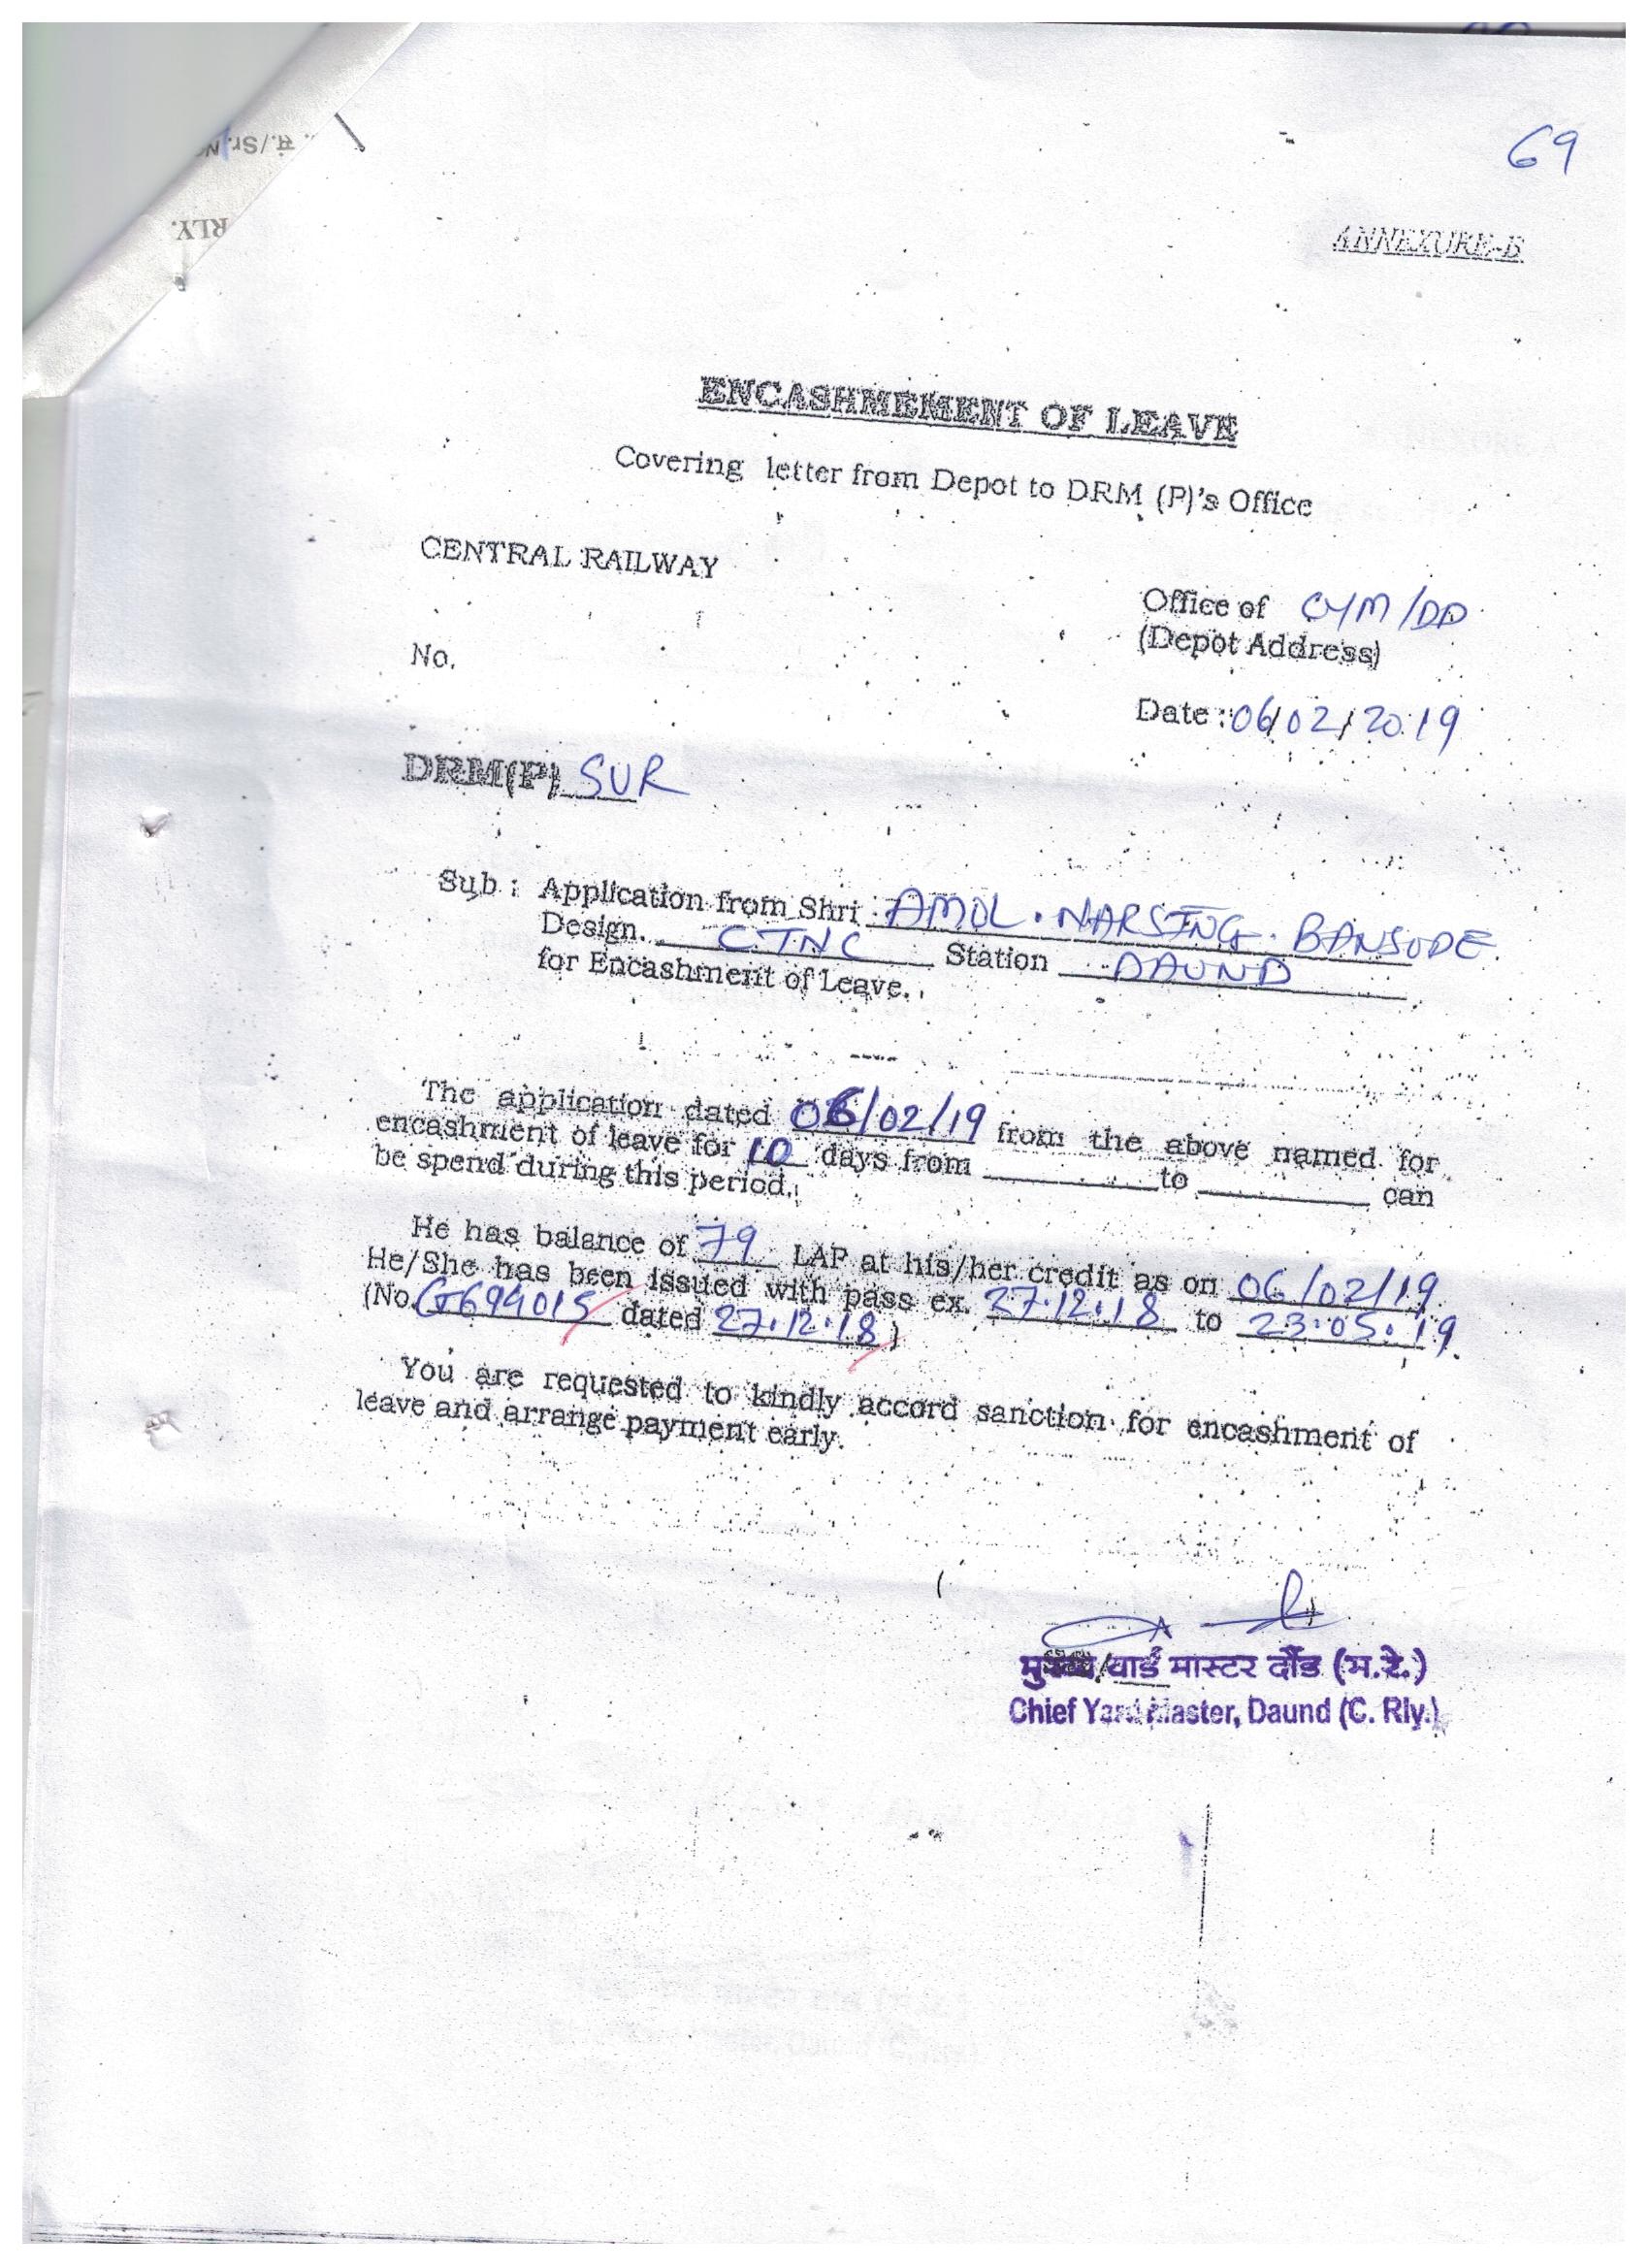 69
ANNEXURE-B
सं./Sr. No.
RLY.
ENCASHMEMENT OF LEAVE
Covering letter from Depot to DRM (P)'s Office
CENTRAL RAILWAY
Office of CYM/DD
(Depot Address)
No.
Date : 06/02/2019
DRM(P) SUR
Sub : Application from Shri AMOL. NARSING. BANSODE.
Design. CTNC Station DAUND
for Encashment of Leave.
The application dated 06/02/19 from the above named for
encashment of leave for 10 days from ______ to ______ can
be spend during this period.
He has balance of 79 LAP at his/her credit as on 06/02/19
He/She has been issued with pass ex. 27.12.18 to 23.05.19.
(No. G694015 dated 27.12.18)
You are requested to kindly accord sanction for encashment of
leave and arrange payment early.
यार्ड मास्टर दौंड (म.रे.)
Chief Yard Master, Daund (C. Rly.)